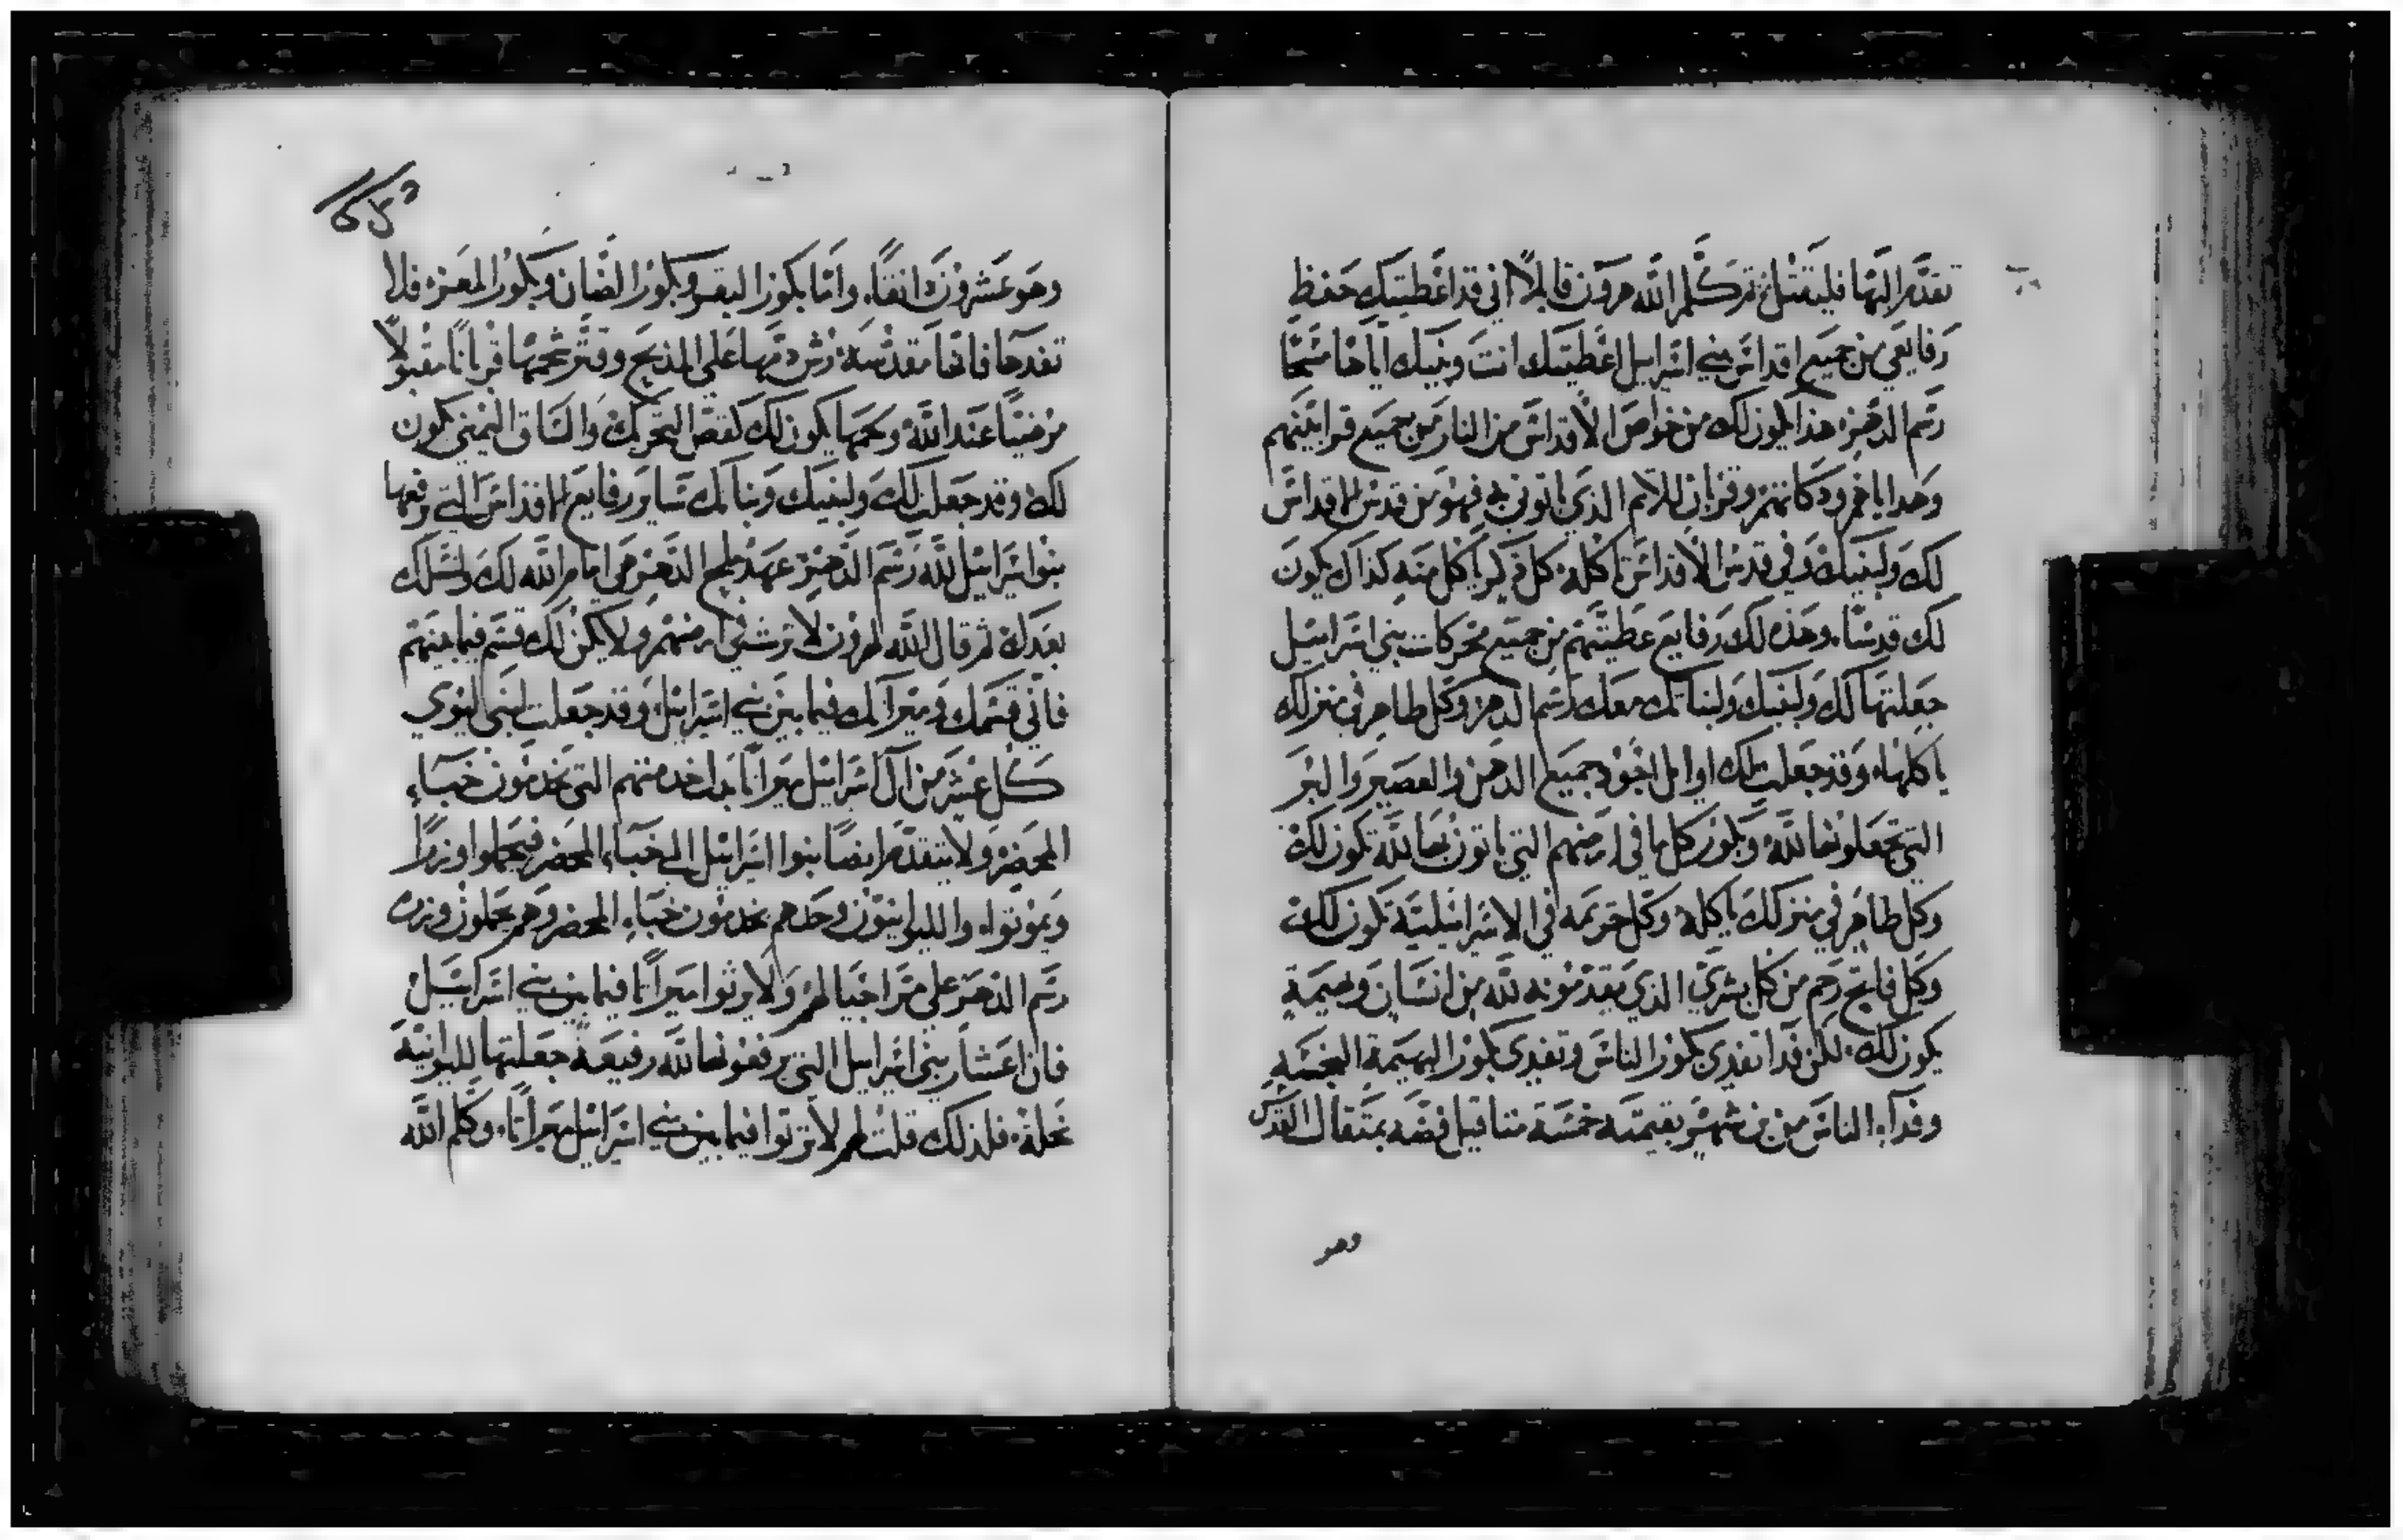 تقدم اليها فليقتل ثم كلم الله هرون قايلا اني قد اعطيتك حفظ
رفايعي من جميع اقداس بني اسرايل اعطيتك انت وبنيك اياها مسحا
رسم الدهر هذا يكون لك من خواص الاقداس من النار من جميع قرابينهم
وهداياهم وذكاتهم وقربان للاثم الذي ياتوني به فهو من قدس الاقداس
لك ولبنيك وفي قدس الاقداس تاكله كل ذكر ياكل منه كذاك يكون
لك قدسا وهذه لك رفايع عطيتهم من جميع تحركات بني اسرايل
جعلتها لك ولبنيك ولبناتك معك رسم الدهر وكل طاهر في منزلك
ياكلها وقد جعلت لك اوايل اجود جميع الدهن والعصير والبر
التي تجعلونها لله وبكور كل ما في ارضهم التي ياتون بها لله تكون لك
وكل طاهر في منزلك ياكله وكل حرمه في الاسرايلية تكون لك
وكل فاتح رحم من كل بشري الذي يقدمونه لله من انسان وبهيمة
يكون لك لكن فدا تفدي بكور الناس وتفدي بكور البهيمة النجسه
وفدآء الناس من بن شهر بقيمته خمسة مثاقيل فضه بمثقال القدس
وهو
وهو عشرون دانقا واما بكور البقر وبكور الضان وبكور المعز فلا
تفدها فانها مقدسة رش دمها علي المذبح وقتر شحمها قربانا مقبولا
مرضيا عند الله ولحمها يكون لك كقص التحريك والساق اليمني يكون
لك وقد جعلت لك ولبنيك وبناتك ساير رفايع الاقداس التي رفعها
بنوا اسرايل لله رسم الدهر عهد ملح الدهر هي امام الله لك ولنسلك
بعدك ثم قال الله لهرون لا ترث في ارضهم ولا يكن لك قسم فيما بينهم
فاني قسمك وميراثك فيما بين بني اسرايل وقد جعلت لبني ليوي
كل عشر من آل اسرايل ميراثا بدل خدمتهم التي يخدمون خبآء
المحضر ولا يتقدم ايضا بنوا اسرايل الي خبآء المحضر فيحملوا وزرا
ويموتوا والليوانيون وحدهم يخدمون خبآء المحضر وهم يحملون وزره
رسم الدهر علي مر اجيالهم ولا يرثوا ميراثا فيما بين بني اسرايل
فان اعشار بني اسرايل التي يرفعونها لله رفيعة جعلتها لليوانية
نحلة فلذلك قلت لهم لا ترثوا فيما بين بني اسرايل ميراثا وكلم الله